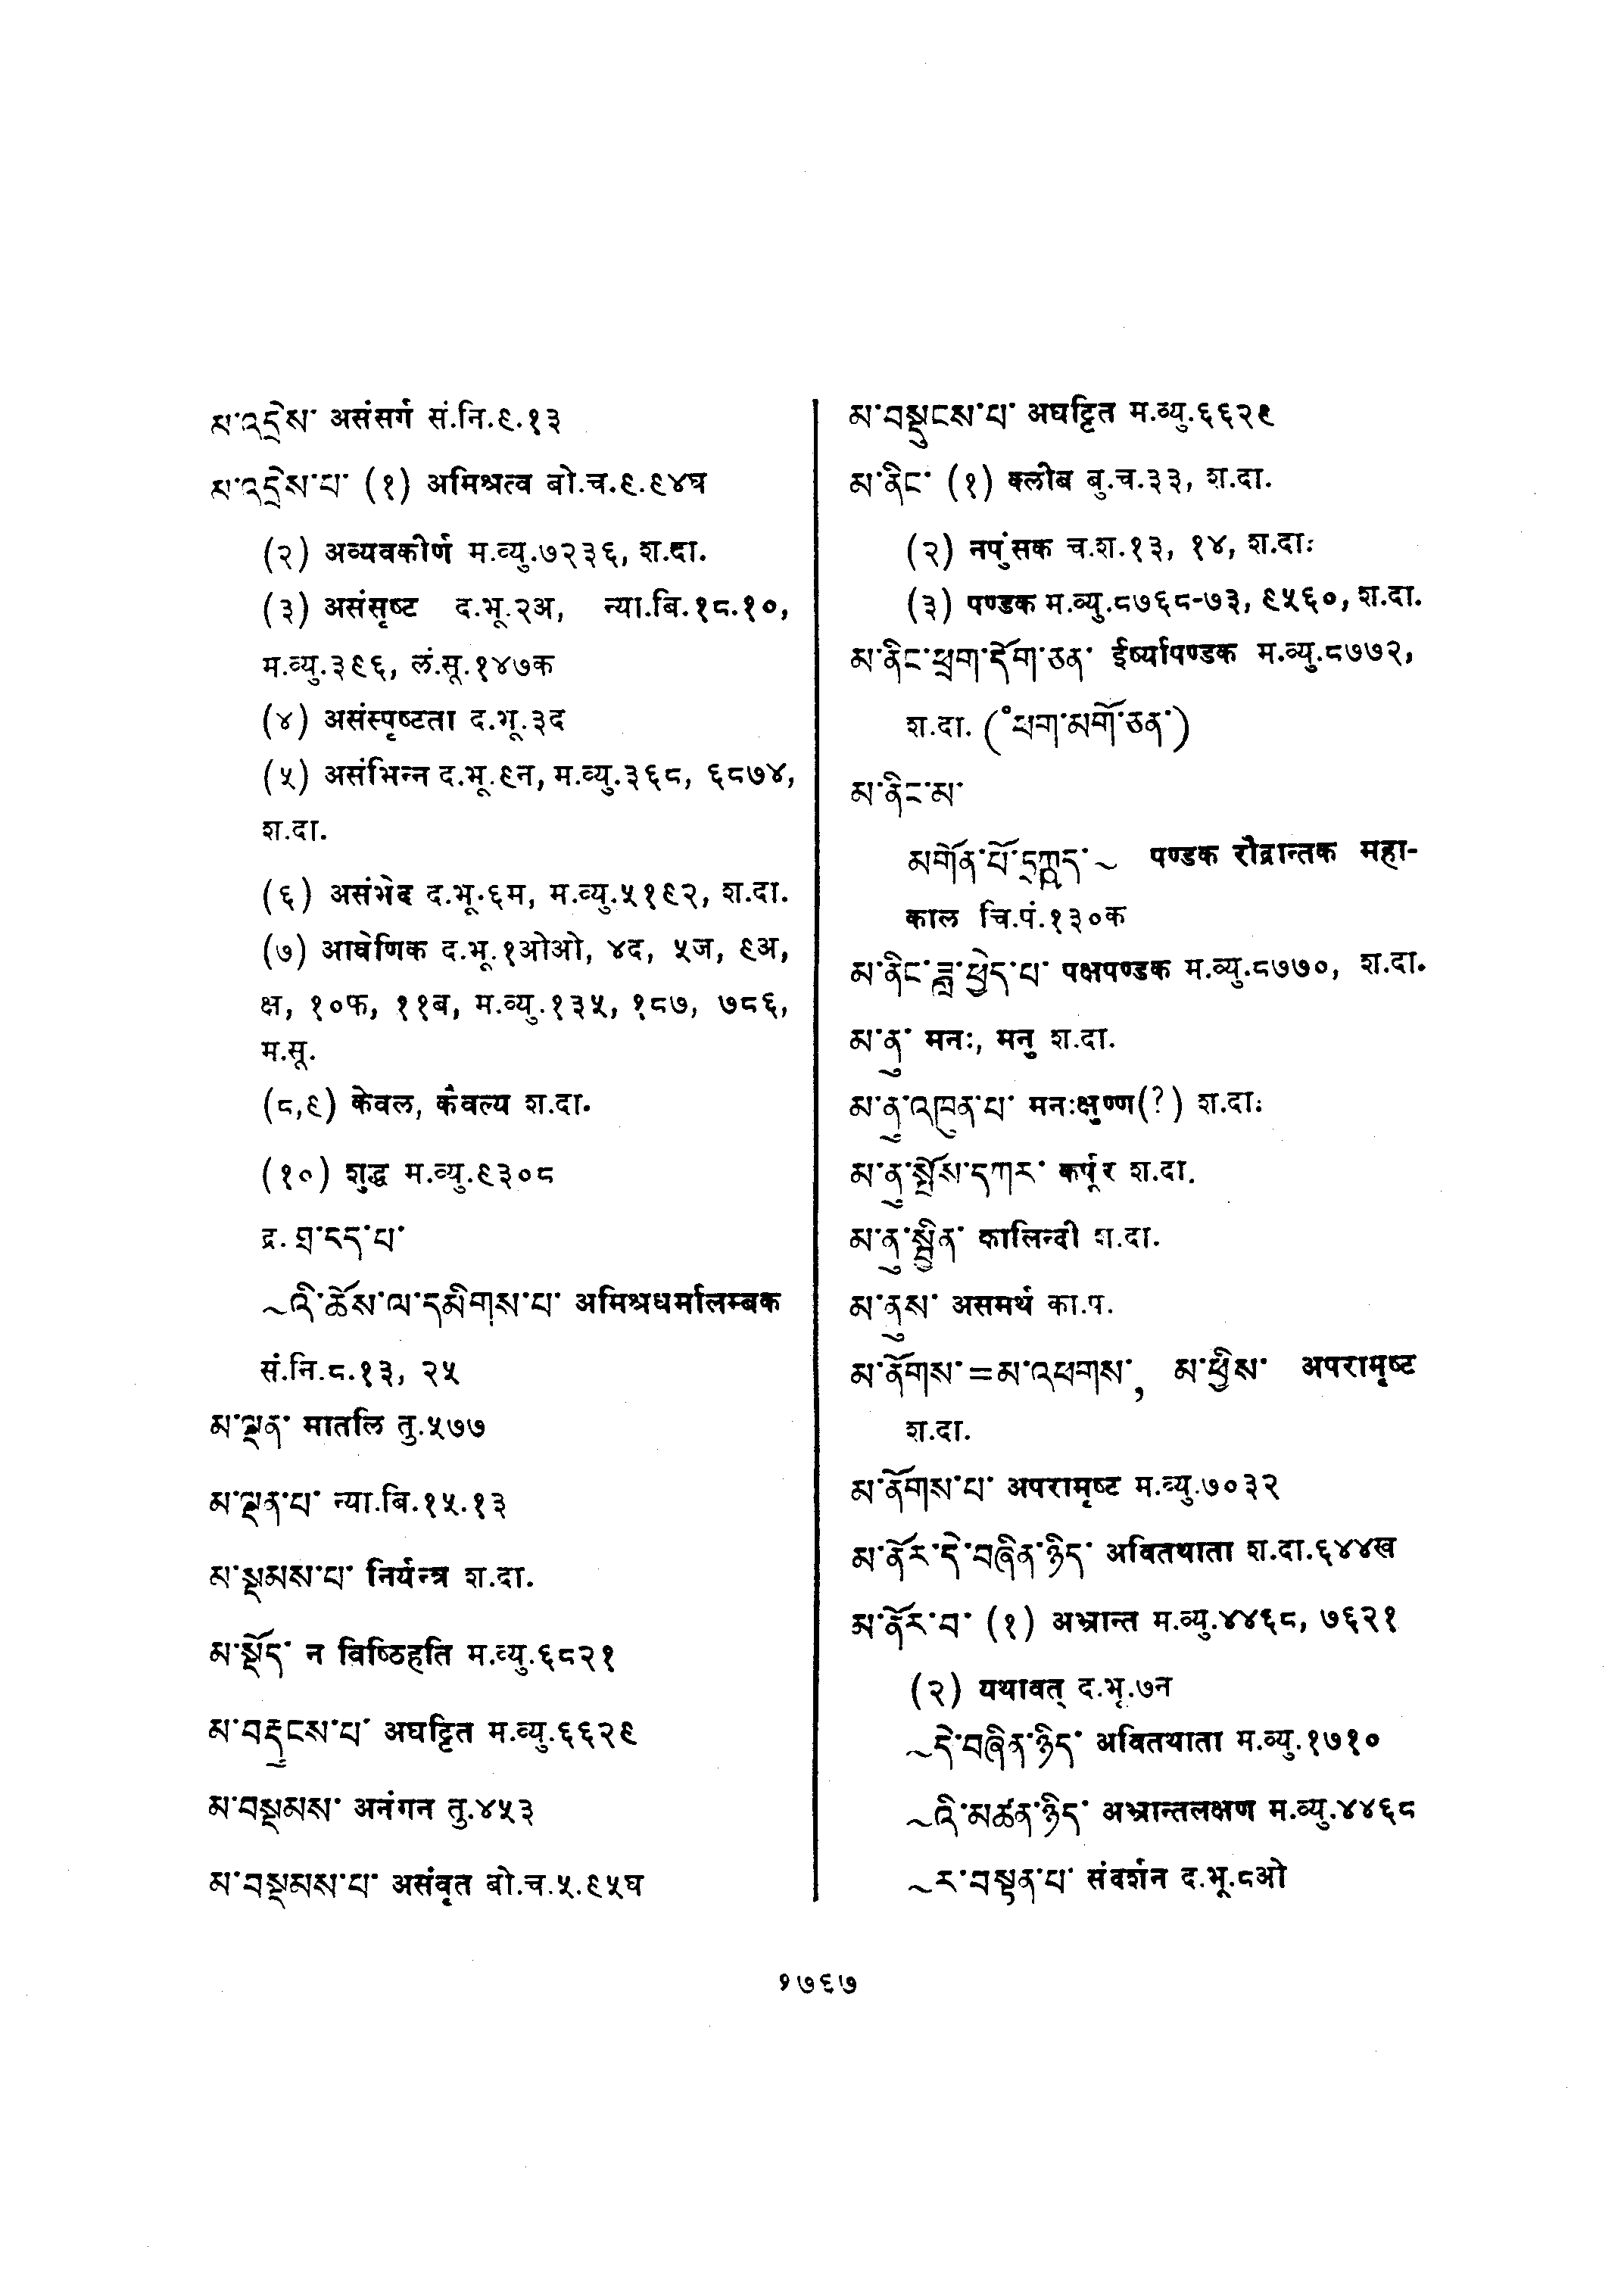 མ་འདྲེས་ असंसर्ग सं.नि.९.१३
མ་འདྲེས་པ་ (१) अमिश्रत्व बो.च.९.९४घ
(२) अव्यवकीर्ण म.व्यु.७२३६, श.दा.
(३) असंसृष्ट द.भू.२अ, न्या.बि.१८.१०,
म.व्यु.३९६, लं.सू.१४७क
(४) असंस्पृष्टता द.भू.३द
(५) असंभिन्न द.भू.९न, म.व्यु.३६८, ६८७४,
श.दा.
(६) असंभेद द.भू.६म, म.व्यु.५१९२, श.दा.
(७) आवेणिक द.भू.१ओओ, ४द, ५ज, ९अ,
क्ष, १०फ, ११ब, म.व्यु.१३५, १८७, ७८६,
म.सू.
(८,९) केवल, कैवल्य श.दा.
(१०) शुद्ध म.व्यु.९३०८
द्र. གྲ་ངད་པ་
~འི་ཆོས་ལ་དམིགས་པ་ अमिश्रधर्मालम्बक
सं.नि.८.१३, २५
མ་ལྡན་ मातलि तु.५७७
མ་ལྡན་པ་ न्या.बि.१५.१३
མ་སྡམས་པ་ निर्यन्त्र श.दा.
མ་སྡོད་ न विष्ठिहति म.व्यु.६८२१
མ་བརྡུངས་པ་ अघट्टित म.व्यु.६६२९
མ་བསྡམས་ अनंगन तु.४५३
མ་བསྡམས་པ་ असंवृत बो.च.५.९५घ
མ་བསྡུངས་པ་ अघट्टित म.व्यु.६६२९
མ་ནིང་ (१) क्लीब बु.च.३३, श.दा.
(२) नपुंसक च.श.१३, १४, श.दा.
(३) पण्डक म.व्यु.८७६८-७३, ९५६०, श.दा.
མ་ནིང་ཕྲག་དོག་ཅན་ ईर्ष्यापण्डक म.व्यु.८७७२,
श.दा. (°ཕག་མགོ་ཅན་)
མ་ནིང་མ་
མགོན་པོ་ ~ पण्डक रौद्रान्तक महा-
काल चि.पं.१३०क
མ་ནིང་ཟླ་ཕྱེད་པ་ पक्षपण्डक म.व्यु.८७७०, श.दा.
མ་ནུ་ मनः, मनु श.दा.
མ་ནུ་འཁུན་པ་ मनःक्षुण्ण(?) श.दा.
མ་ནུ་སྤོས་དཀར་ कर्पूर श.दा.
མ་ནུ་སྦྱིན་ कालिन्दी श.दा.
མ་ནུས་ असमर्थ का.प.
མ་ནོགས་=མ་འཕགས་, མ་ཕྱིས་ अपरामृष्ट
श.दा.
མ་ནོགས་པ་ अपरामृष्ट म.व्यु.७०३२
མ་ནོར་དེ་བཞིན་ཉིད་ अवितथाता श.दा.६४४ख
མ་ནོར་བ་ (१) अभ्रान्त म.व्यु.४४६८, ७६२१
(२) यथावत् द.भू.७न
~དེ་བཞིན་ཉིད་ अवितथाता म.व्यु.१७१०
~འི་མཚན་ཉིད་ अभ्रान्तलक्षण म.व्यु.४४६८
~ར་བསྟན་པ་ संदर्शन द.भू.८ओ
१७९७